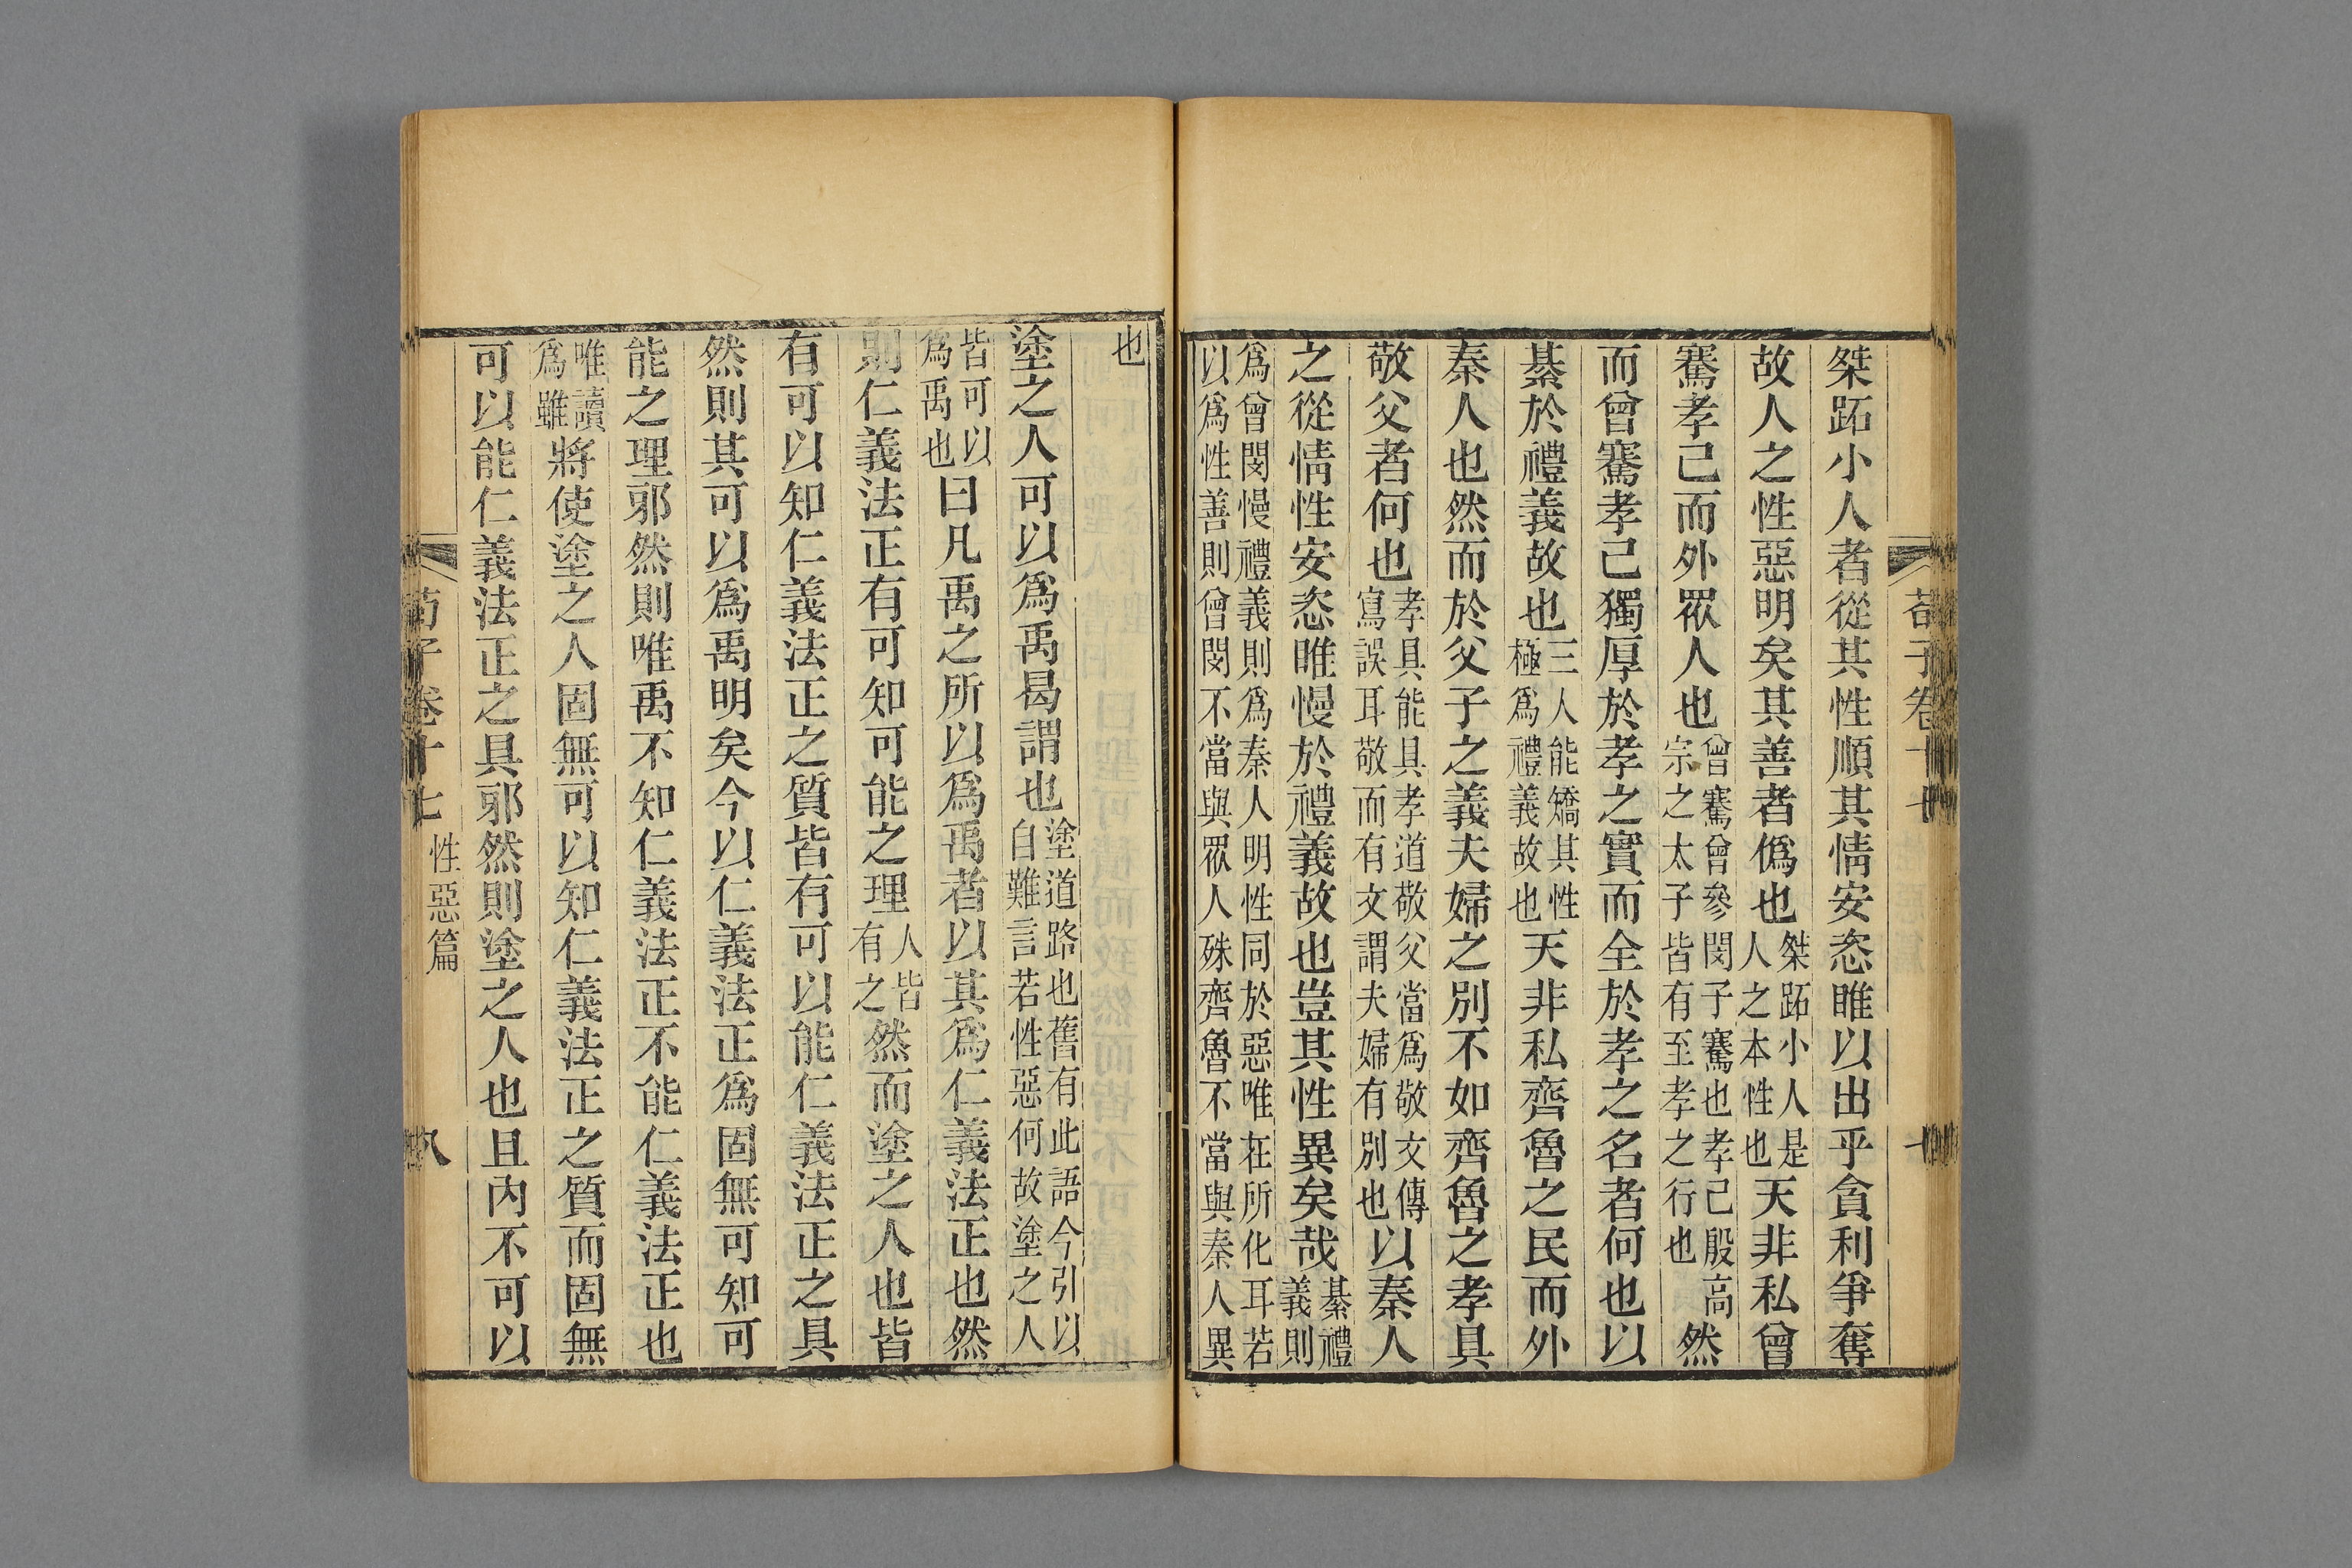 桀跖小人者從其性順其情安恣睢以出乎貪利爭奪
故人之性惡明矣其善者僞也桀跖小人是人之本性也天非私曾
騫孝己而外眾人也曾騫曾參閔子騫也孝己殷高宗之太子皆有至孝之行也然
而曾騫孝己獨厚於孝之實而全於孝之名者何也以
綦於禮義故也三人能矯其性極爲禮義故也天非私齊魯之民而外
秦人也然而於父子之義夫婦之別不如齊魯之孝具
敬父者何也孝具能具孝道敬父當爲敬文傳寫誤耳敬而有文謂夫婦有別也以秦人
之從情性安恣睢慢於禮義故也豈其性異矣哉綦禮義則
爲曾閔慢禮義則爲秦人明性同於惡唯在所化耳若
以爲性善則曾閔不當與眾人殊齊魯不當與秦人異
荀子卷十七
也
塗之人可以爲禹曷謂也塗道路也舊有此語今引以自難言若性惡何故塗之人
皆可以爲禹也曰凡禹之所以爲禹者以其爲仁義法正也然
則仁義法正有可知可能之理人皆有之然而塗之人也皆
有可以知仁義法正之質皆有可以能仁義法正之具
然則其可以爲禹明矣今以仁義法正爲固無可知可
能之理邪然則唯禹不知仁義法正不能仁義法正也
唯讀爲雖將使塗之人固無可以知仁義法正之質而固無
可以能仁義法正之具邪然則塗之人也且內不可以
荀子卷十七 性惡篇 八